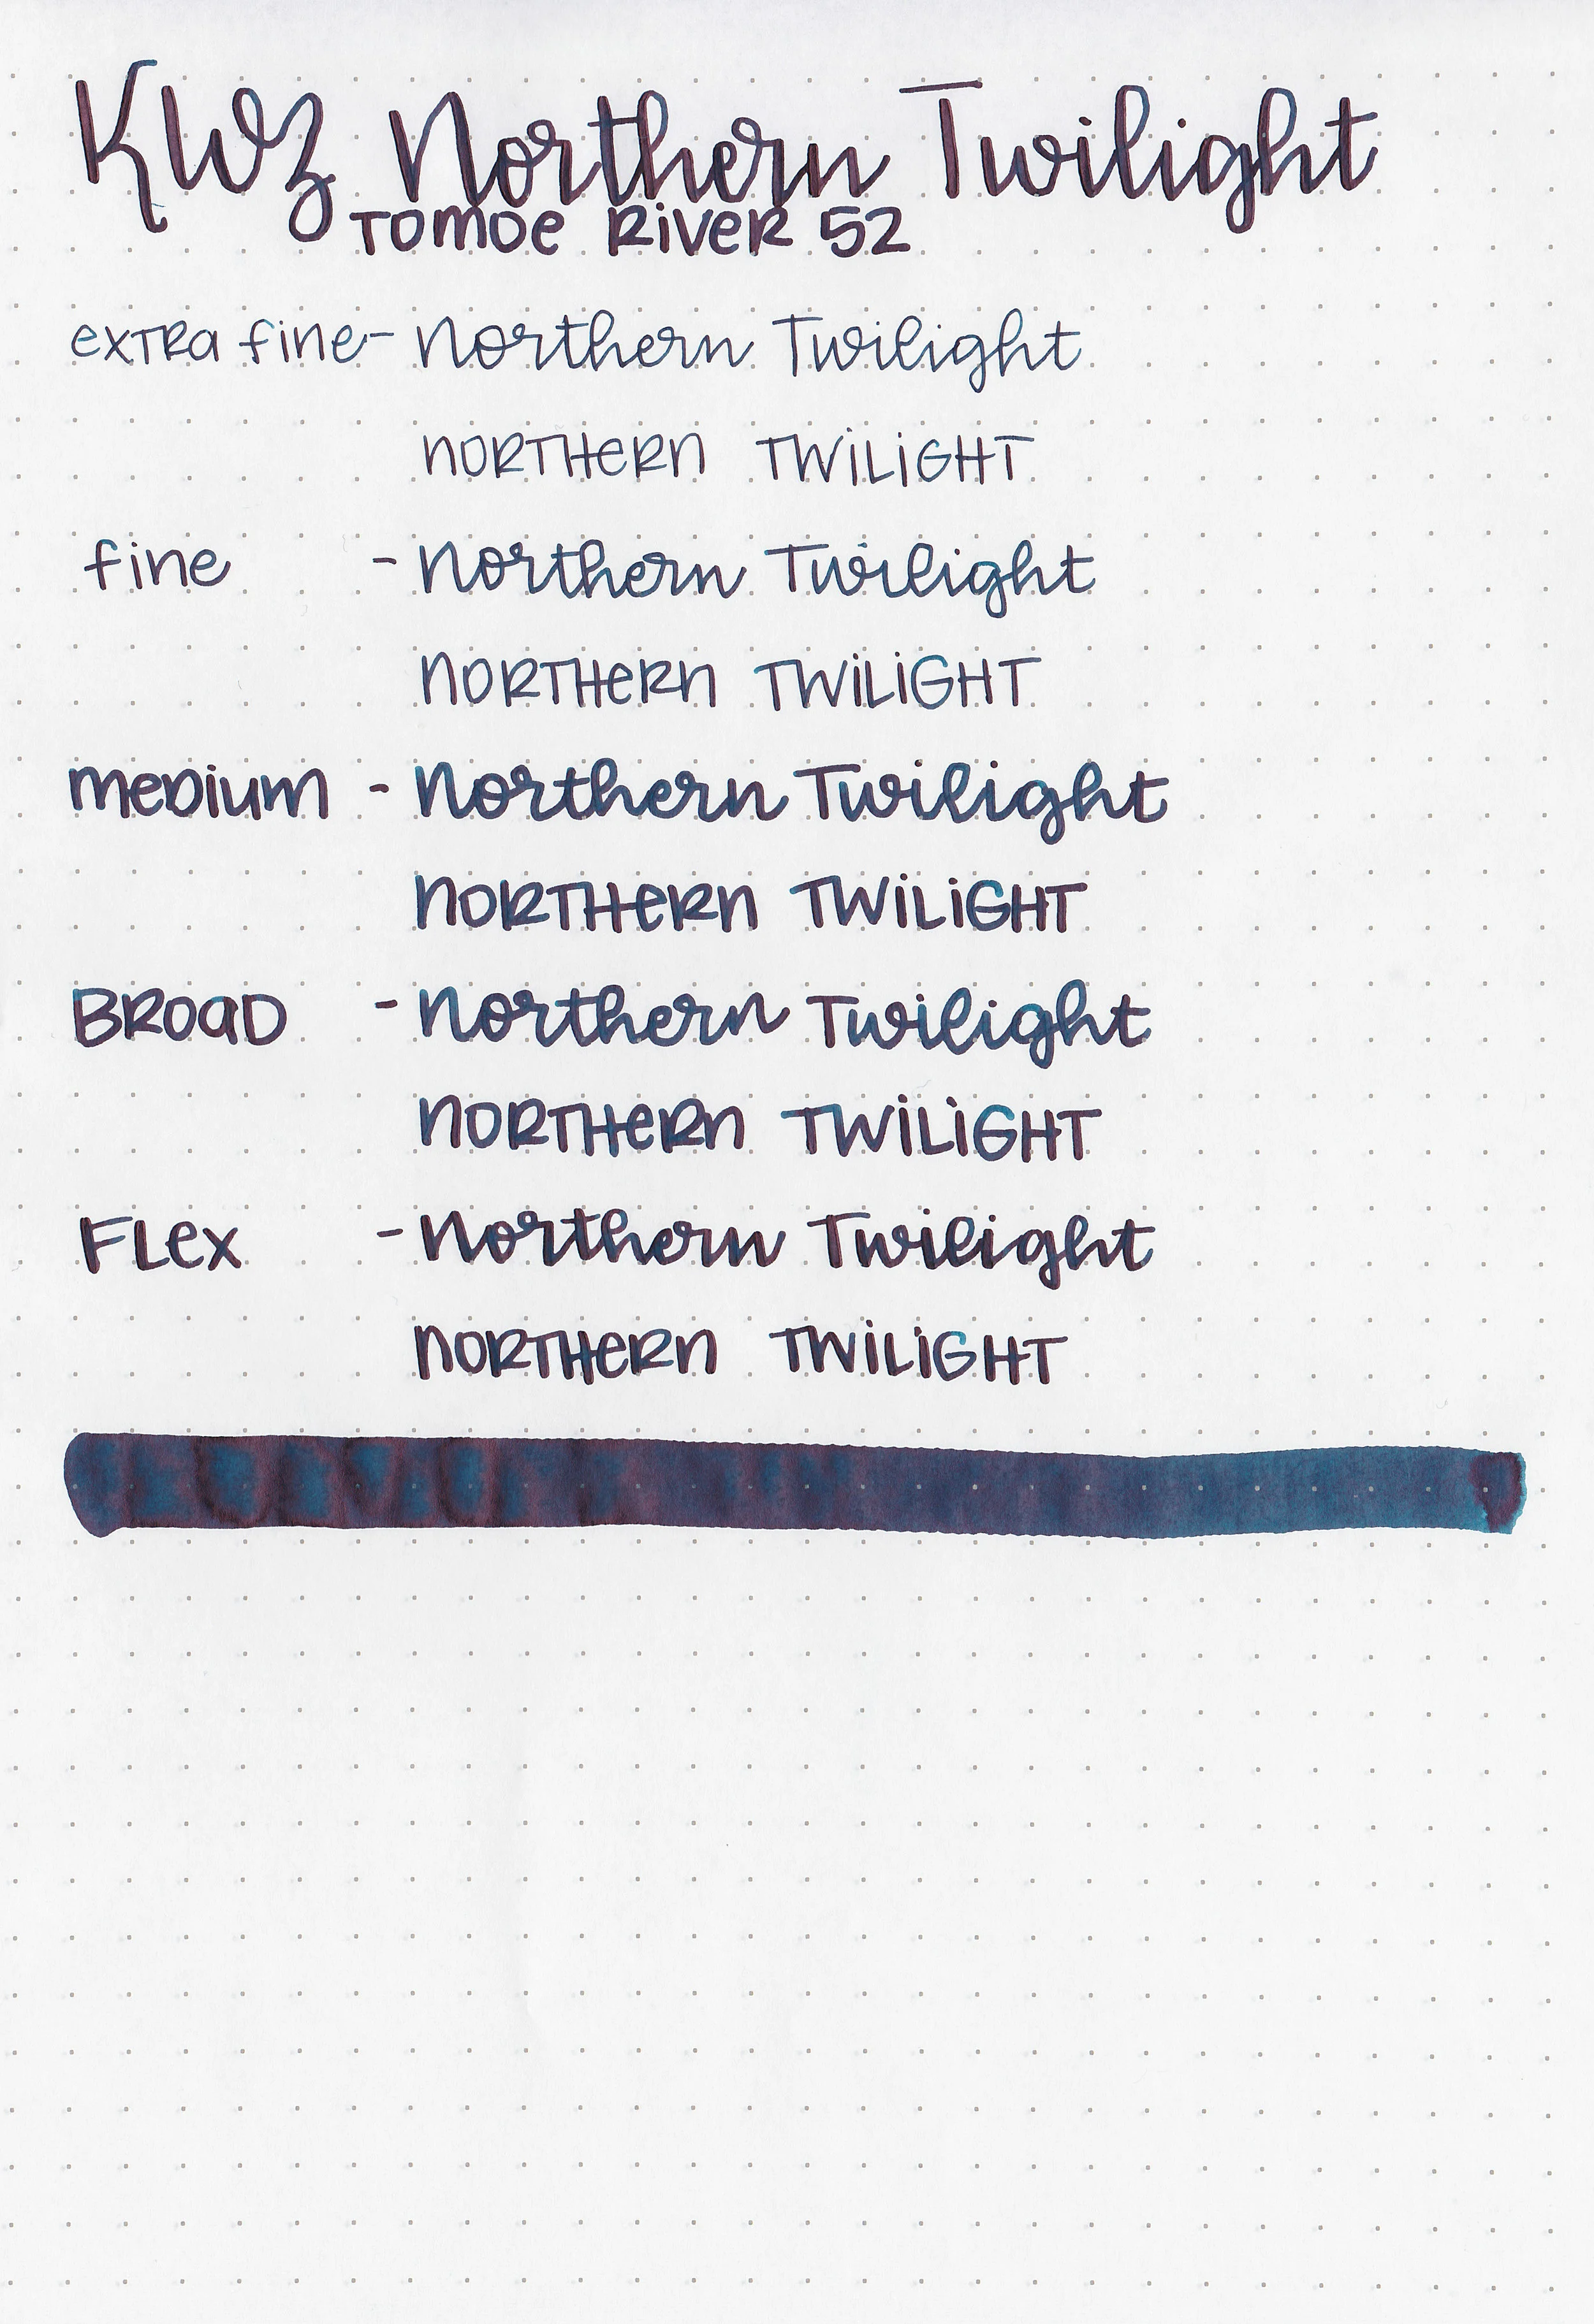 KWZ Northern Twilight
TOMOE RiVeR 52
exTRa fine - Northern Twilight
NORTHeRN TWiLiGHT
fine - Northern Twilight
NORTHeRN TWiLiGHT
meDium - Northern Twilight
NORTHeRN TWiLiGHT
BROaD - Northern Twilight
NORTHeRN TWiLiGHT
FLex - Northern Twilight
NORTHeRN TWiLiGHT